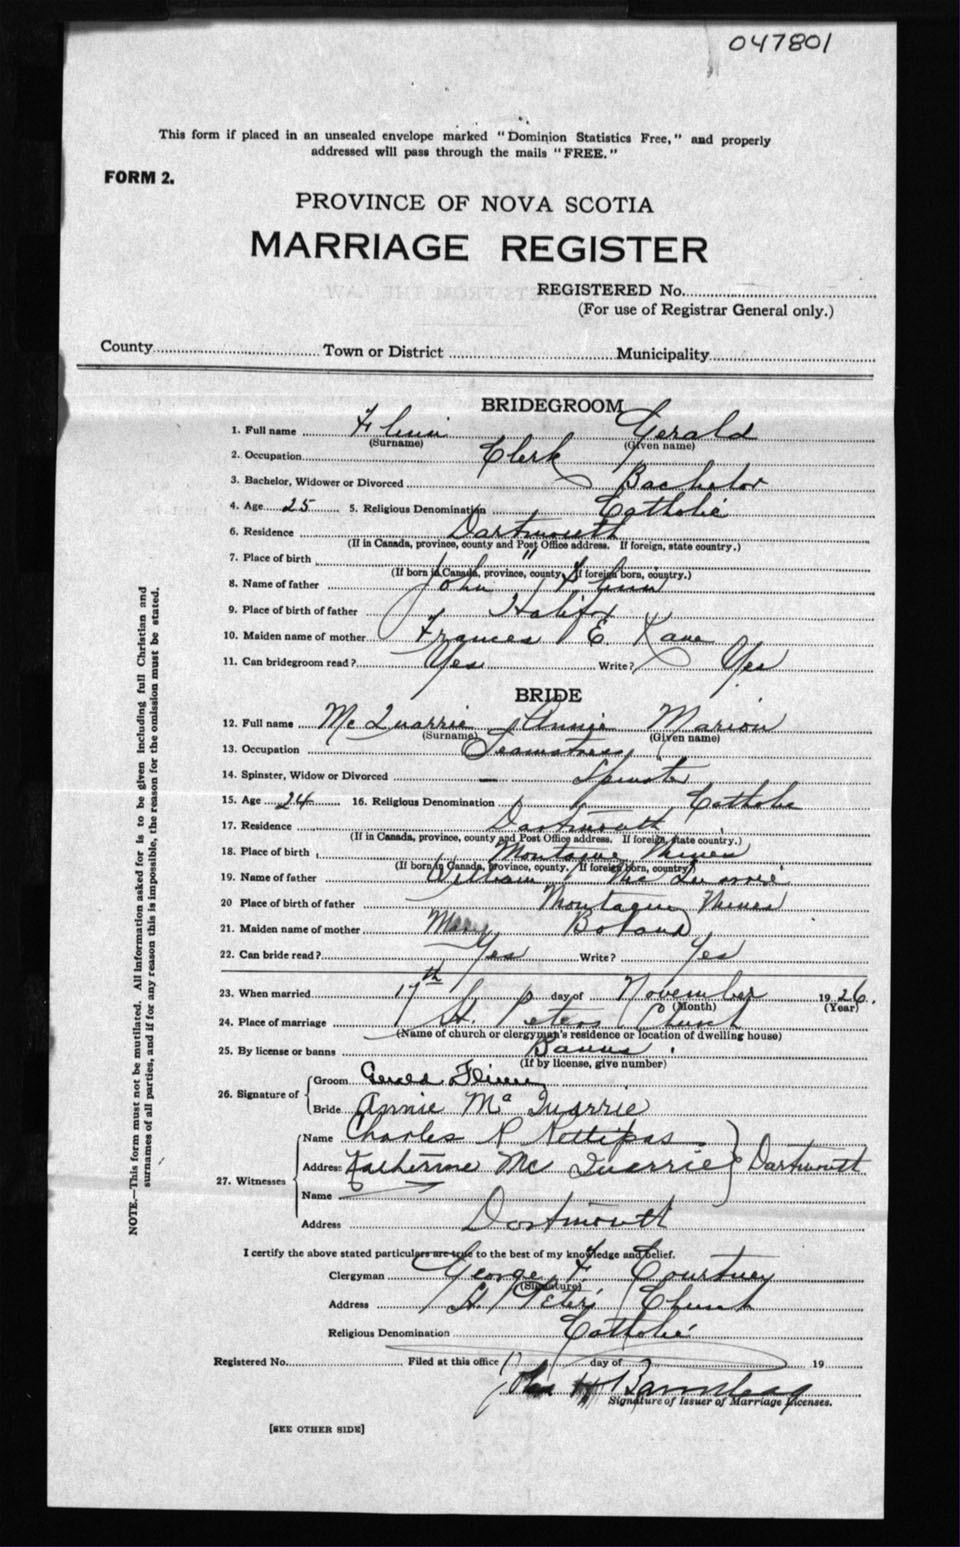 047801
This form if placed in an unsealed envelope marked "Dominion Statistics Free," and properly
addressed will pass through the mails "FREE."
FORM 2.
PROVINCE OF NOVA SCOTIA
MARRIAGE REGISTER
REGISTERED No.
(For use of Registrar General only.)
County Town or District Municipality
BRIDEGROOM
1. Full name Flinn Gerald
(Surname) (Given name)
2. Occupation Clerk
3. Bachelor, Widower or Divorced Bachelor
4. Age 25 5. Religious Denomination Catholic
6. Residence Dartmouth
(If in Canada, province, county and Post Office address. If foreign, state country.)
7. Place of birth "
(If born in Canada, province, county. If foreign born, country.)
8. Name of father John Flinn
9. Place of birth of father Halifax
10. Maiden name of mother Frances E. Kane
11. Can bridegroom read? Yes Write? Yes
BRIDE
12. Full name McQuarrie Annie Marion
(Surname) (Given name)
13. Occupation Seamstress
14. Spinster, Widow or Divorced Spinster
15. Age 24 16. Religious Denomination Catholic
17. Residence Dartmouth
(If in Canada, province, county and Post Office address. If foreign, state country.)
18. Place of birth Montague Mines
(If born in Canada, province, county. If foreign born, country)
19. Name of father William McQuarrie
20 Place of birth of father Montague Mines
21. Maiden name of mother Mary Boland
22. Can bride read? Yes Write? Yes
23. When married 17th day of November 1926.
(Month) (Year)
24. Place of marriage St. Peters Church
(Name of church or clergyman's residence or location of dwelling house)
25. By license or banns Banns
(If by license, give number)
26. Signature of Groom Gerald Flinn
Bride Annie McQuarrie
27. Witnesses Name Charles R Nettipas
Address Katherine McQuarrie Dartmouth
Name
Address Dartmouth
I certify the above stated particulars are true to the best of my knowledge and belief.
Clergyman George F. Courtney
(Signature)
Address St. Peters Church
Religious Denomination Catholic
Registered No. Filed at this office day of 19
John H
Signature of Issuer of Marriage Licenses.
[SEE OTHER SIDE]
NOTE.—This form must not be mutilated. All information asked for is to be given including full Christian and
surnames of all parties, and if for any reason this is impossible, the reason for the omission must be stated.